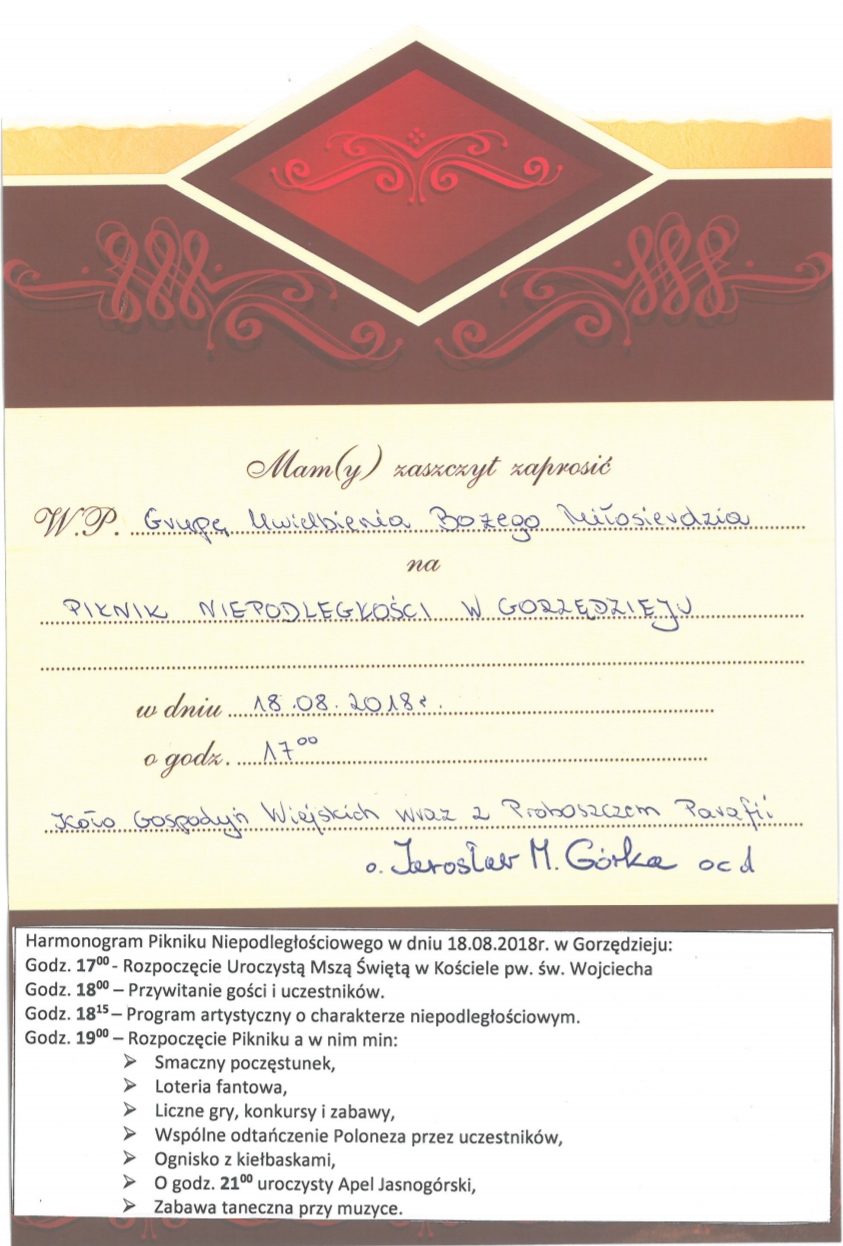 Mam(y) zaszczyt zaprosić
W.P. Grupę Uwielbienia Bożego Miłosierdzia
na
PIKNIK NIEPODLEGŁOŚCI W GORZĘDZIEJU
w dniu 18.08.2018r.
o godz. 17⁰⁰
Koło Gospodyń Wiejskich wraz z Proboszczem Parafii
o. Jarosław M. Górka ocd
Harmonogram Pikniku Niepodległościowego w dniu 18.08.2018r. w Gorzędzieju:
Godz. 17⁰⁰ - Rozpoczęcie Uroczystą Mszą Świętą w Kościele pw. św. Wojciecha
Godz. 18⁰⁰ – Przywitanie gości i uczestników.
Godz. 18¹⁵ – Program artystyczny o charakterze niepodległościowym.
Godz. 19⁰⁰ – Rozpoczęcie Pikniku a w nim min:
➤ Smaczny poczęstunek,
➤ Loteria fantowa,
➤ Liczne gry, konkursy i zabawy,
➤ Wspólne odtańczenie Poloneza przez uczestników,
➤ Ognisko z kiełbaskami,
➤ O godz. 21⁰⁰ uroczysty Apel Jasnogórski,
➤ Zabawa taneczna przy muzyce.